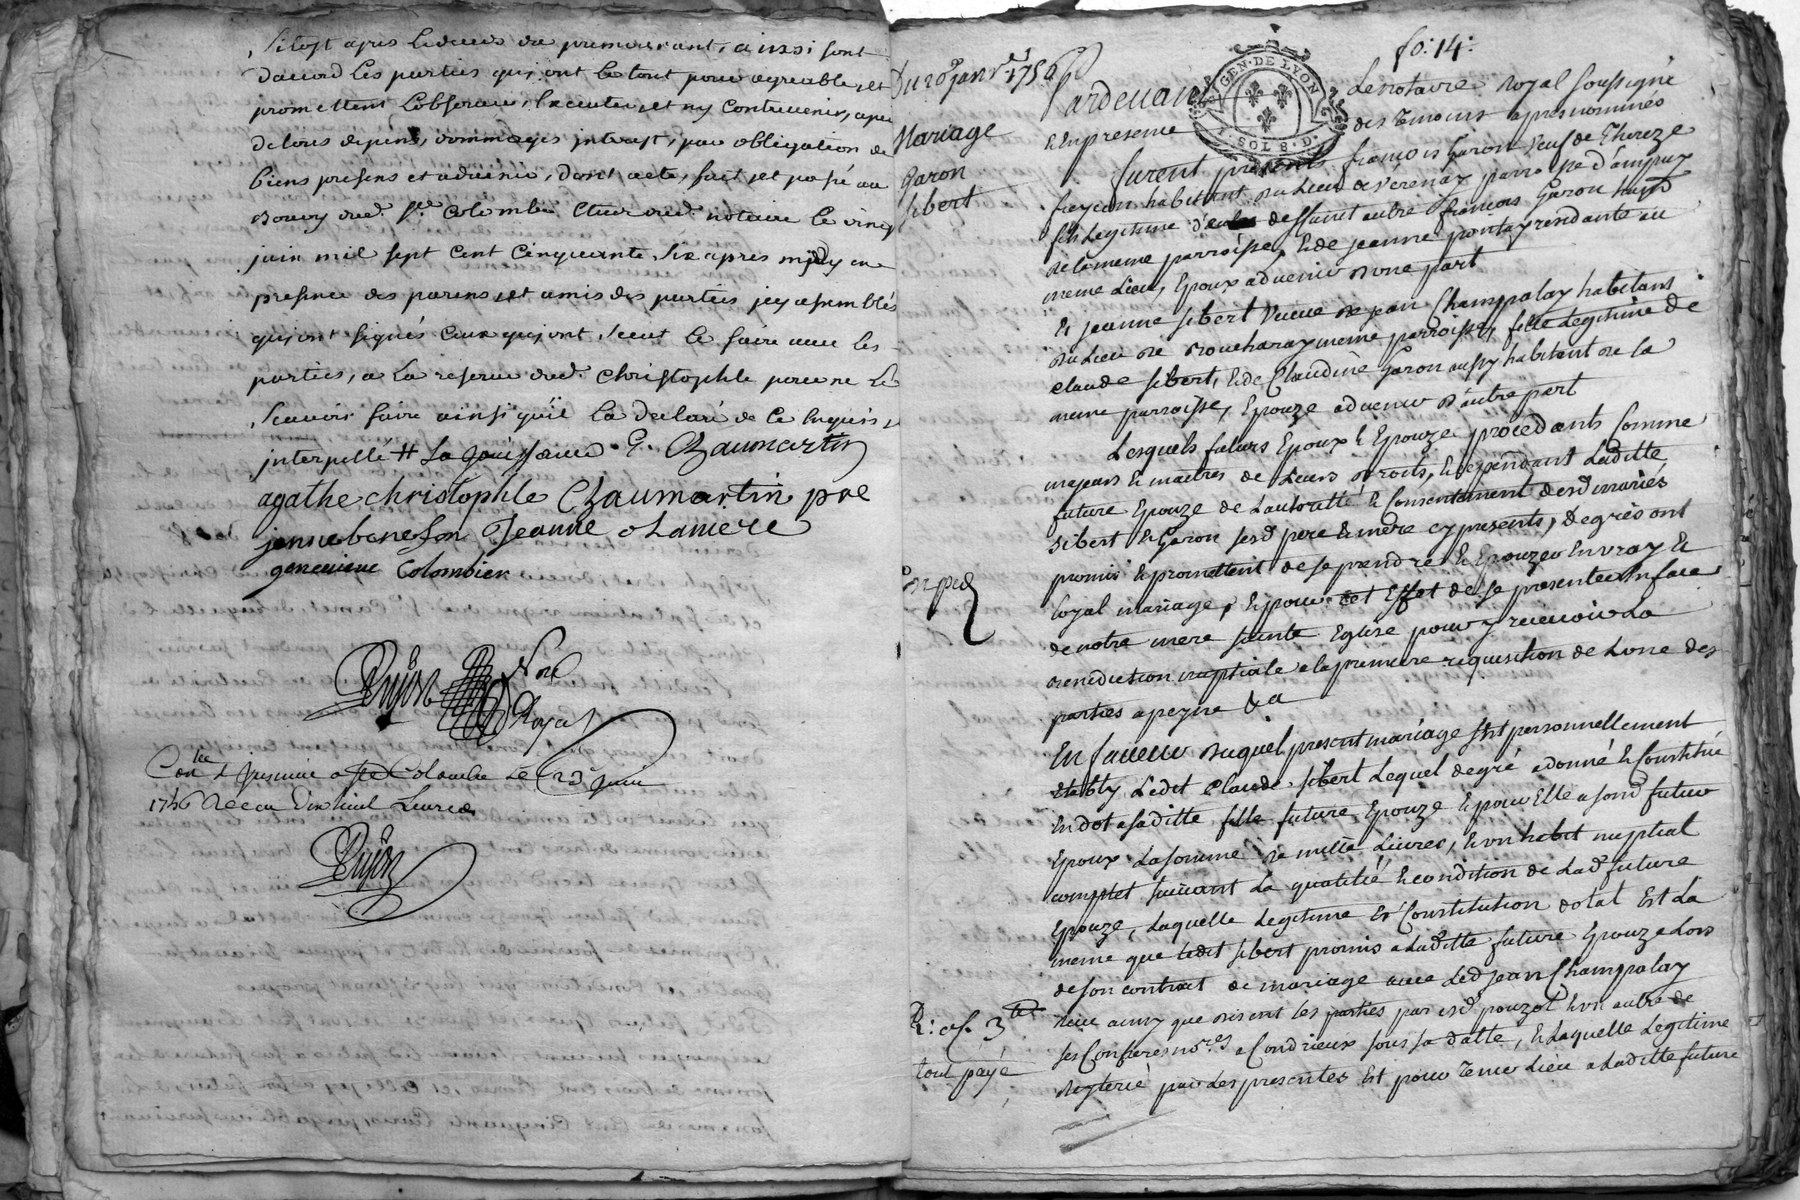 Sitost apres le deces du premourant, ainsi sont
daccord les parties qui ont le tout pour agreable, et
promettent l'observer, Executer et ny Contrevenir, a peine
de tous depens, dommages interest, par obligation de
biens presens et advenir, dont acte, fait et passé au
Bourg dud. Ste Colombe Etude dud. notaire le vingt
juin mil sept cent Cinquante Six apres midy en
presence des parens et amis des parties icy assemblés
qui ont signés Ceux qui ont Sceut le faire avec les
parties, a la reserve dud. Christophle pour ne le
Scavoir faire ainsi quil la declaré de ce Enquis &
interpellé # La jouissance C. Chaumartin
agathe christophle Chaumartin pre
jenne bonefon Jeanne Olaniere
genevieve Colombier
Dujon Nore
Royal
Conlle & Insinué a Ste Colombe Le 23e juin
1756 Reçu Dixhuit Livres
Dujon
fo: 14:
GEN. DE LYON
1. SOL 8. D.
Du 20 janvr. 1756
Mariage
Garon
Sibert
Pardevant Le notaire royal soussigné
& En presence des Temoins apres nommés
furent presents françois Garon veuf de Thereze
fayeun habitant du Lieu de verenay parroisse d'ampuy
fils Legitime d'eu deffunt autre françois Garon habt
de la meme parroisse, & de jeanne pontay residante au
meme Lieu, Epoux advenir d'une part
Et jeanne Sibert veuve de jean Champalay habitans
du Lieu de Boucharay meme parroisse, fille Legitime de
Claude Sibert, & de Claudine Garon aussy habitant de la
meme parroisse, Epouze advenir d'autre part
Lesquels futurs Epoux & Epouze procedants Comme
majeurs & maitres de Leurs droits, & cependant Laditte
future Epouze de L'autorité & Consentement desd mariés
Sibert & Garon sesd pere & mere cy presents, de gré ont
promis & promettent de se prendre & Epouzer En vray &
loyal mariage, & pour cet Effet de se presenter En face
de notre mere sainte Eglise pour y recevoir La
benediction nuptiale a la premiere requisition de Lune des
parties a peyne &a
En faveur duquel present mariage s'est personnellement
Etably Ledit Claude Sibert Lequel de gré a donné & Constitué
En dot a laditte fille future Epouze & pour Elle a sond futur
Epoux La somme de mille Livres, & un habit nuptial
complet suivant La qualité & condition de Lad future
Epouze, Laquelle Legitime Et Constitution dotal Est La
meme que ledit Sibert promis a Laditte future Epouze Lors
de son contrat de mariage avec Led jean Champalay
Reçu ainsy que disent les parties par Me pouzol & un autre de
ses Confreres nores a Condrieux sous sa datte, & Laquelle Legitime
reyterée par Les presentes Est pour Tenir Lieu a Laditte future
Exped
R: cy. 3 tt
tout payé